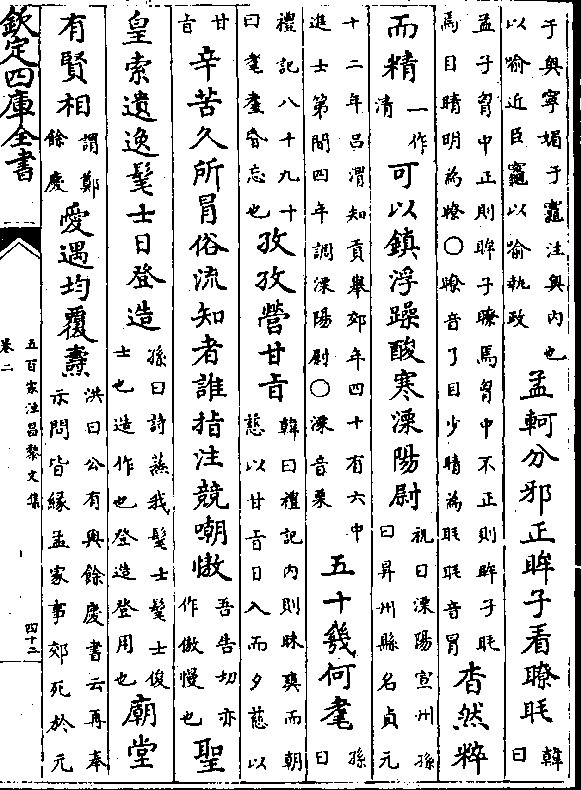 于奧寧媚于竈注奧内也
以喻近臣竈以喻執政
孟軻分邪正眸子看瞭眊
韓
曰
孟子胷中正則眸子瞭焉胷中不正則眸子眊
焉目睛明為瞭○瞭音了目少睛為眊眊音冒
杳然粹
而精
一作
清
可以鎮浮躁酸寒溧陽尉
祝曰溧陽宣州孫
曰昇州縣名貞元
十二年吕渭知貢舉郊年四十有六中
進士第間四年調溧陽尉○溧音栗
五十幾何耄
孫
曰
禮記八十九十
曰耄耋昏忘也
孜孜營甘旨
韓曰禮記内則昧爽而朝
慈以甘旨日入而夕慈以
甘
旨
辛苦久所冒俗流知者誰指注競嘲慠
吾告切亦
作傲慢也
聖
皇索遺逸髦士日登造
孫曰詩蒸我髦士髦士俊
士也造作也登造登用也
廟堂
有賢相
謂鄭
餘慶
愛遇均覆燾
洪曰公有與餘慶書云再奉
示問皆縁孟家事郊死於元
欽定四庫全書
五百家注昌黎文集
卷二
四十二